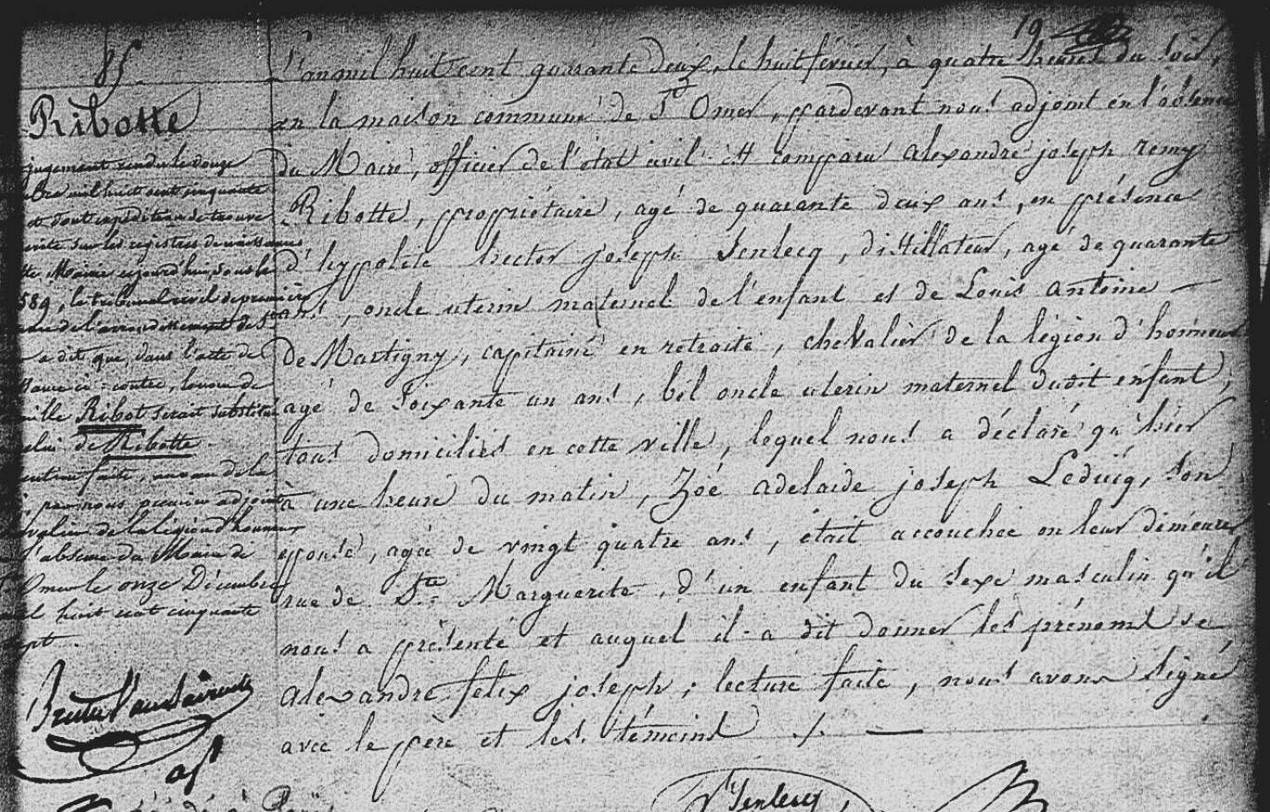 19
85.
Ribotte
jugement rendu le douze
mil huit cent cinquante
et dont expédition se trouve
sur les registres de naissances
Mairie aujourd'hui, sous le
589, le tribunal civil de première
de l'arrondissement de St
a dit que dans l'acte de
ci-contre, le nom de
Ribot serait substitué
de Ribotte.
faite,
par nous premier adjoint
de la légion d'honneur
l'absence du Maire de
Omer le onze Décembre
huit cent cinquante
sept.
L'an mil huit cent quarante deux, le huit février, à quatre heures du soir,
en la maison commune de St Omer, pardevant nous adjoint en l'absence
du Maire, officier de l'état civil est comparu alexandre joseph remy
Ribotte, propriétaire, agé de quarante deux ans, en présence
d'hyppolite hector joseph Senlecq, distillateur, agé de quarante
ans, oncle uterin maternel de l'enfant et de Louis antoine
de Martigny, capitaine en retraite, chevalier de la légion d'honneur
agé de soixante un ans, bel oncle uterin maternel dudit enfant,
tous domiciliés en cette ville, lequel nous a déclaré qu'hier
à une heure du matin, Zoé adelaide joseph Leducq, son
epouse, agée de vingt quatre ans, était accouchée en leur demeure
rue de Ste Marguerite, d'un enfant du sexe masculin qu'il
nous a présenté et auquel il a dit donner les prénoms de
alexandre felix joseph; lecture faite, nous avons signé
avec le père et les témoins ./.
Senlecq